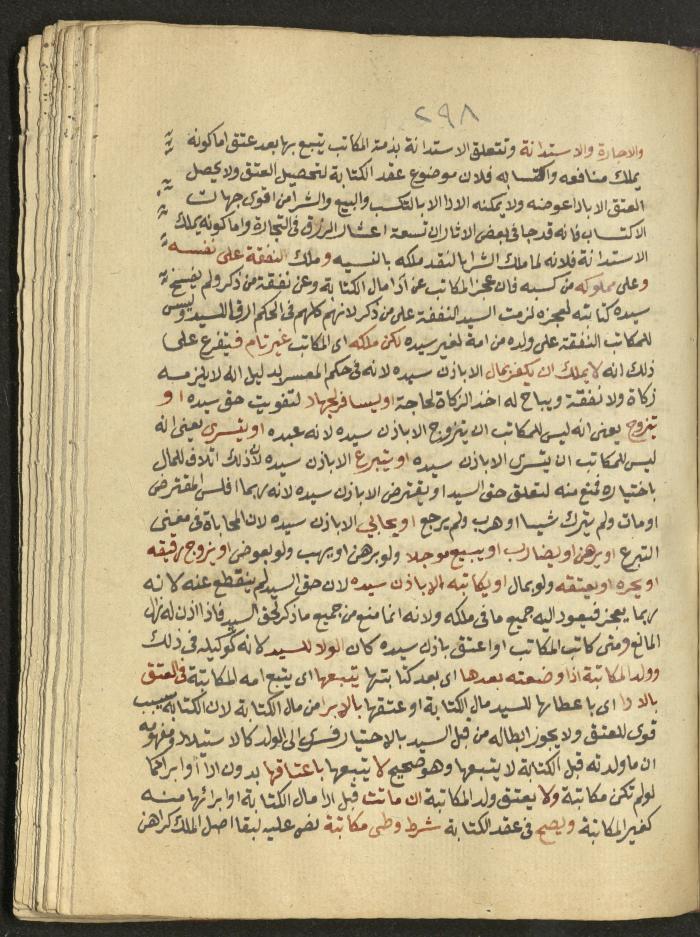 ٢٩٨
والاجارة والاستدانة وتتعلق الاستدانة بذمة المكاتب يتبع بها بعد عتق اما كونه
يملك منافعه واكتسابه فلان موضوع عقد الكتابة لتحصيل العتق ولا يحصل
العتق الا باداء عوضه ولا يمكنه الادا الا بالتكسب والبيع والشرا من اقوى جهات
الاكتساب فانه قد جا فى بعض الاثار ان تسعة اعشار الرزق فى التجارة واما كونه يملك
الاستدانة فلانه لما ملك الشرا بالنقد ملكه بالنسيه وملك النفقة على نفسه
وعلى مملوكه من كسبه فان عجز المكاتب عن اداء مال الكتابة وعن نفقة من ذكر ولم يفسخ
سيده كتابته لعجزه لزمت السيد النفقة على من ذكر لانهم كلهم فى الحكم ارقا للسيد وليس
للمكاتب النفقة على ولده من امة لغير سيده لكن ملكه اى المكاتب غير تام فيتفرع على
ذلك انه لا يملك ان يكفر بمال الا باذن سيده لانه فى حكم المعسر بدليل انه لا يلزمه
زكاة ولا نفقة ويباح له اخذ الزكاة لحاجة او يسافر لجهاد لتفويت حق سيده او
يتزوج يعنى انه ليس للمكاتب ان يتزوج الا باذن سيده لانه عبده او يتسرى يعنى انه
ليس للمكاتب ان يتسرى الا باذن سيده او يتبرع الا باذن سيده لان ذلك اتلاف للمال
باختياره فمنع منه لتعلق حق السيد او يقترض الا باذن سيده لانه ربما افلس المقترض
او مات ولم يترك شيا او هرب ولم يرجع او يحابي الا باذن سيده لان المحاباة فى معنى
التبرع او يرهن او يضارب او يبيع موجلا ولو برهن او يهب ولو بعوض او يزوج رقيقه
او يحده او يعتقه ولو بمال او يكاتبه الا باذن سيده لان حق السيد لم ينقطع عنه لانه
ربما يعجز فيعود اليه جميع ما فى ملكه ولانه انما منع من جميع ما ذكر لحق السيد فاذا اذن له زال
المانع ومتى كاتب المكاتب او اعتق باذن سيده كان الولا للسيد لانه كوكيله فى ذلك
وولد المكاتبة اذا وضعته بعدها اى بعد كتابتها يتبعها اى يتبع امه المكاتبة فى العتق
بالادا اى باعطائها للسيد مال الكتابة او عتقها بالابرا من مال الكتابة لان الكتابة سبب
قوى للعتق ولا يجوز ابطاله من قبل السيد بالاختيار فسرى الى الولد كالاستيلاد ومفهومه
ان ما ولدته قبل الكتابة لا يتبعها وهو صحيح لا يتبعها باعتاقها بدون الادا او ابرا كما
لو لم تكن مكاتبة ولا يعتق ولد المكاتبة ان ماتت قبل ادا مال الكتابة او ابرائها منه
كغير المكاتبة ويصح فى عقد الكتابة شرط وطى مكاتبة نص عليه لبقا اصل الملك كراهن